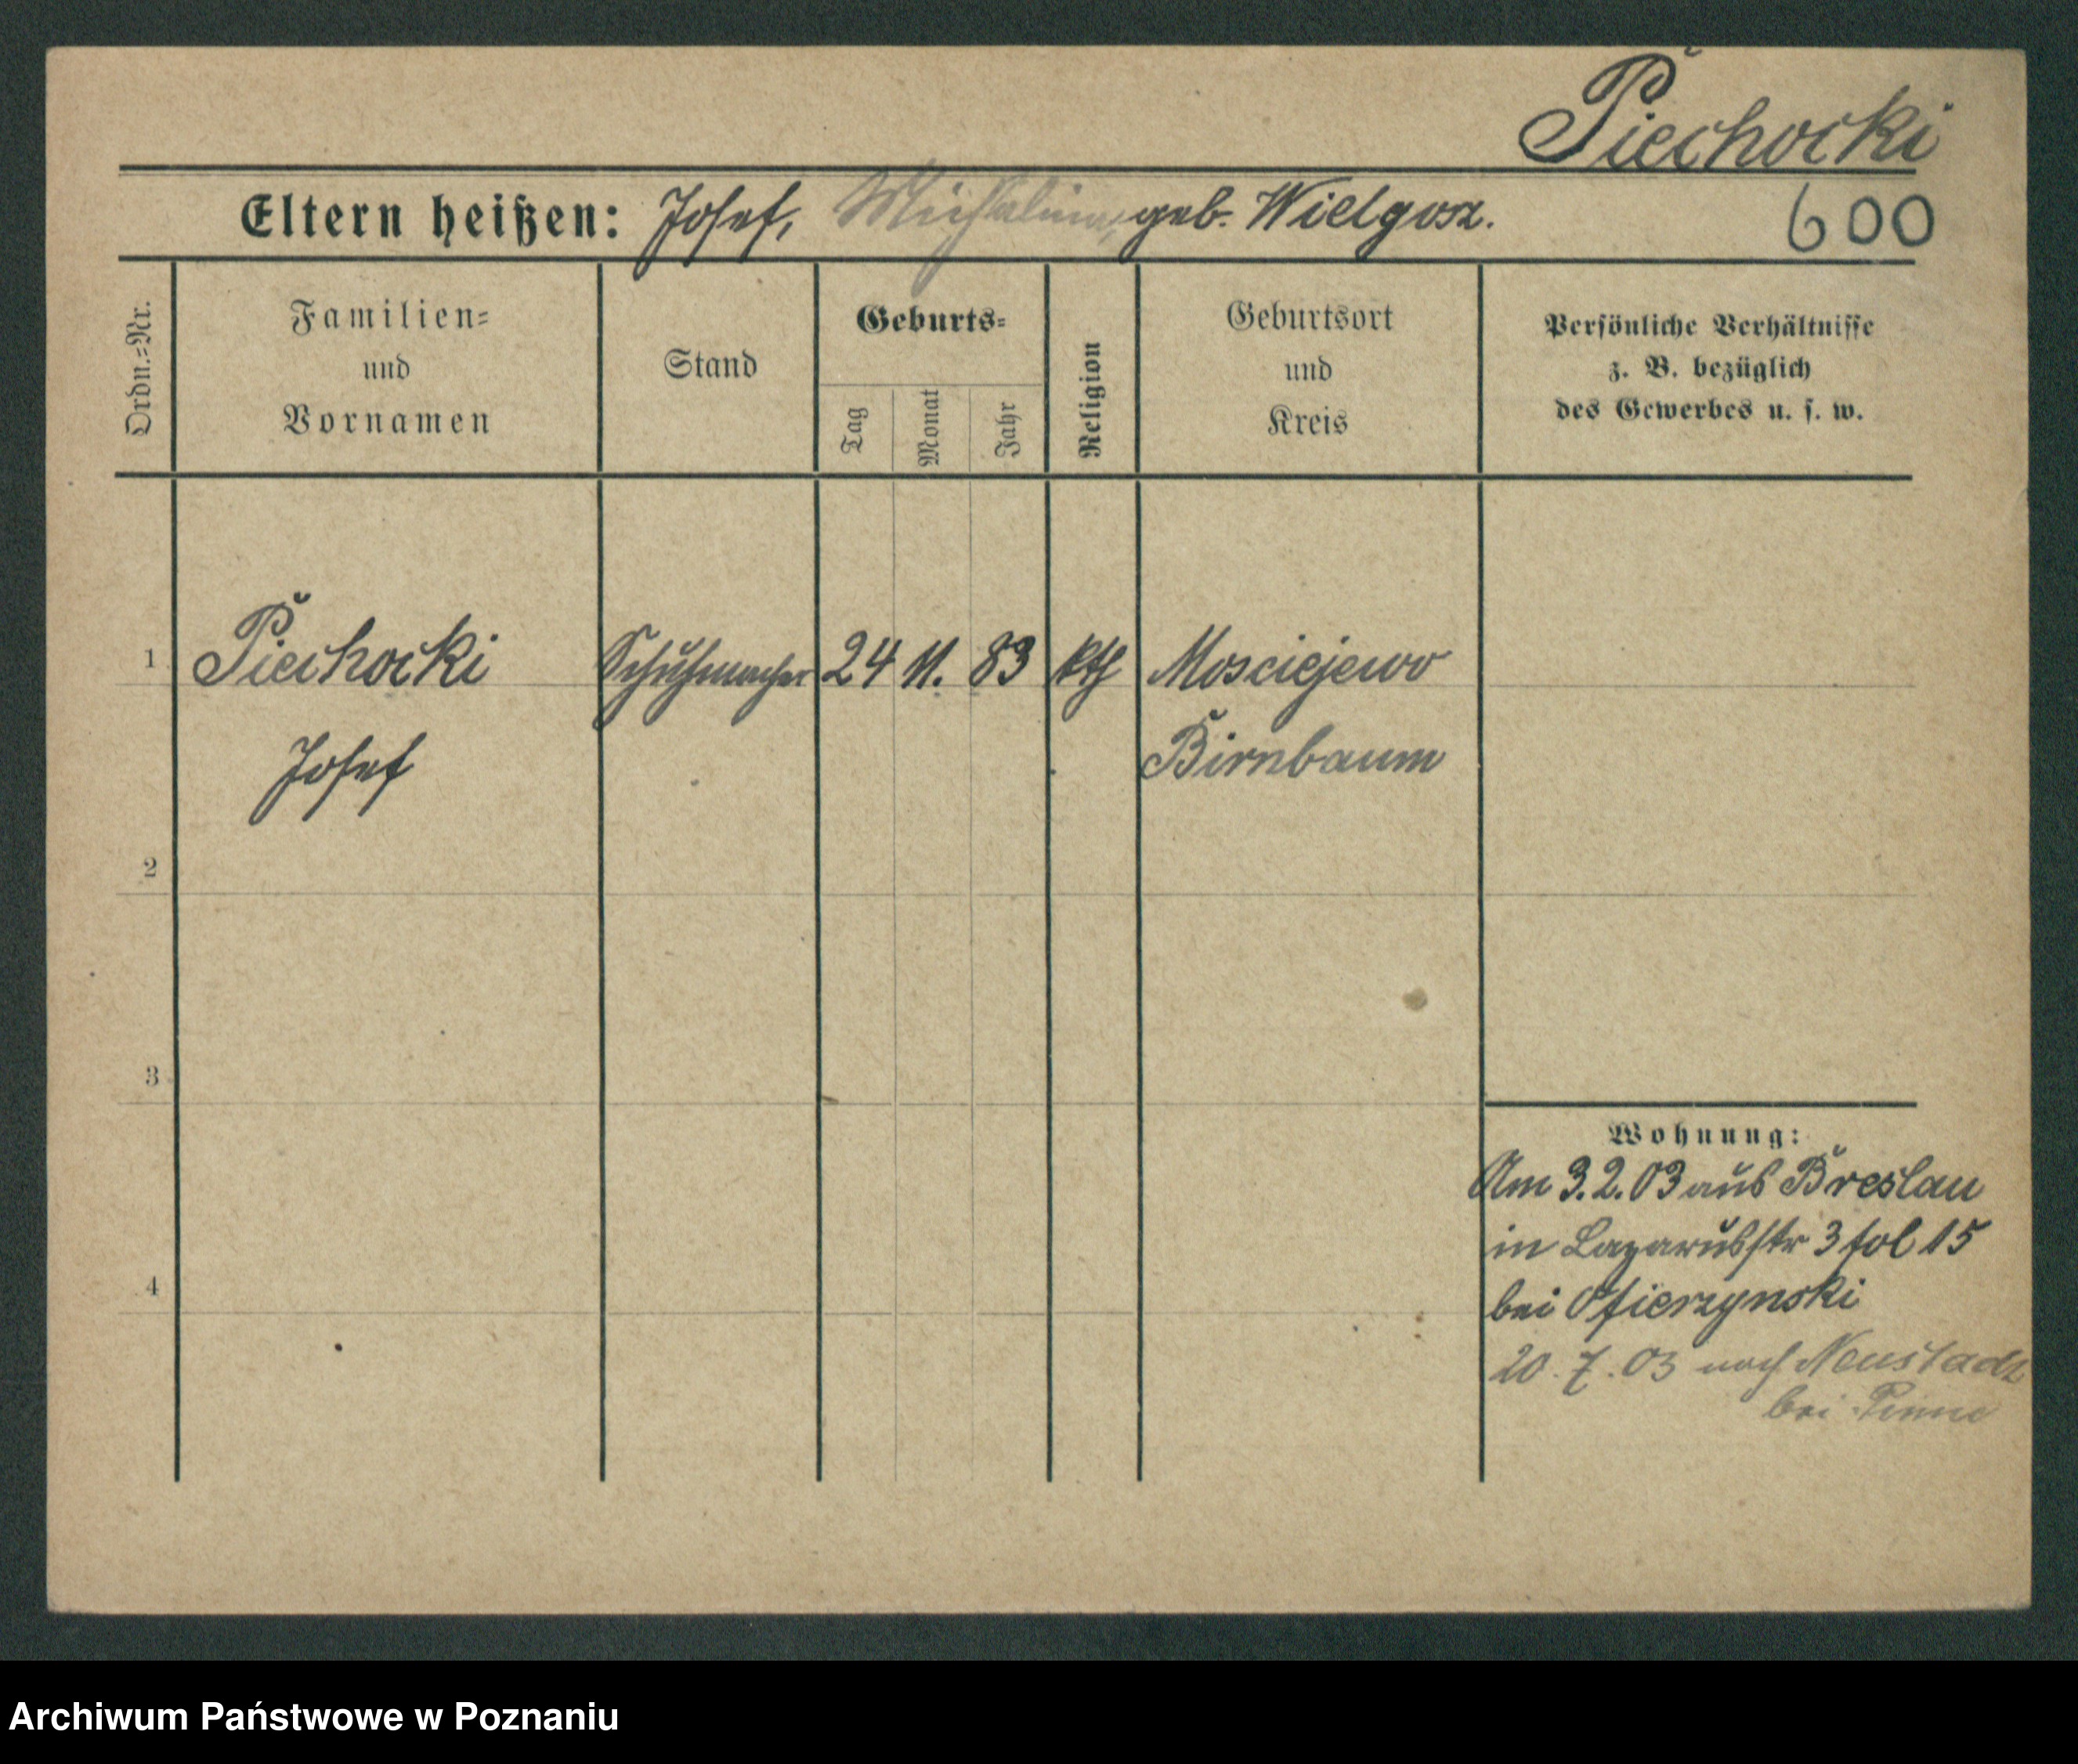 Piechocki
Eltern heißen: Josef, Michalina, geb. Wielgosz.
600
Ordn.=Nr.
Familien=
und
Vornamen
Stand
Geburts=
Tag
Monat
Jahr
Religion
Geburtsort
und
Kreis
Persönliche Verhältnisse
z. B. bezüglich
des Gewerbes u. s. w.
1 Piechocki Schuhmacher 24 11. 83 kth Mosciejewo
Josef Birnbaum
2
3
4
Wohnung:
Am 3.2.03 aus Breslau
in Lazarusstr 3 fol 15
bei Ofierzynski
20. 7. 03 nach Neustadt
bei Pinne
Archiwum Państwowe w Poznaniu